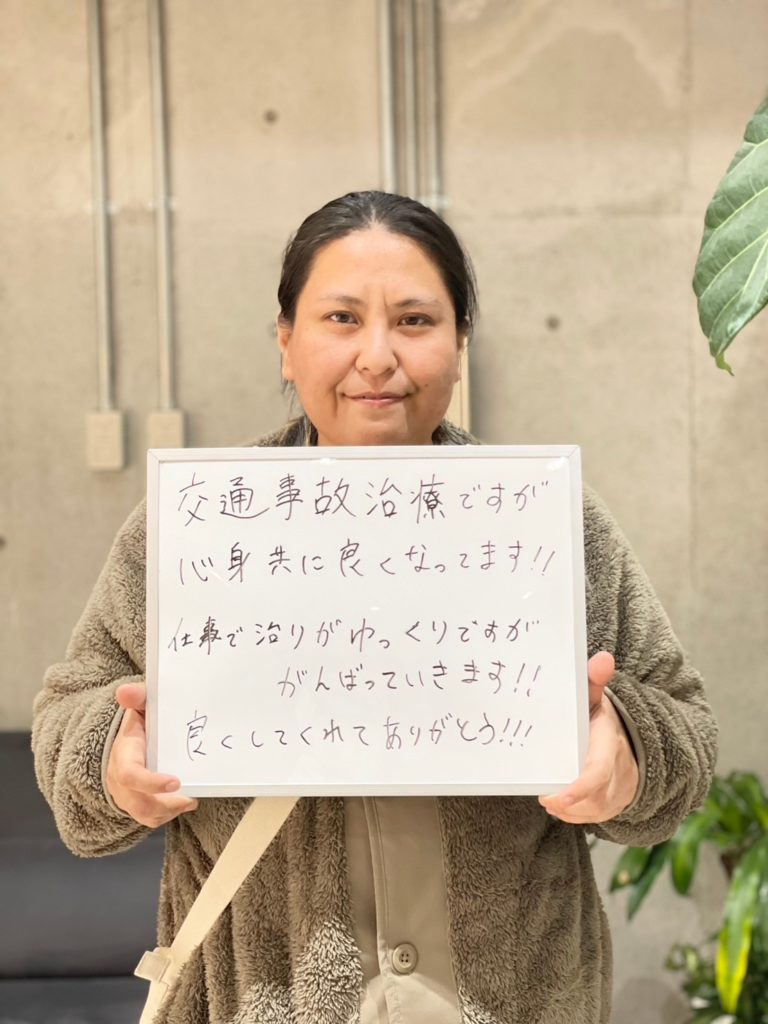 交通事故治療ですが
心身共に良くなってます!!
仕事で治りがゆっくりですが
がんばっていきます!!
良くしてくれてありがとう!!!